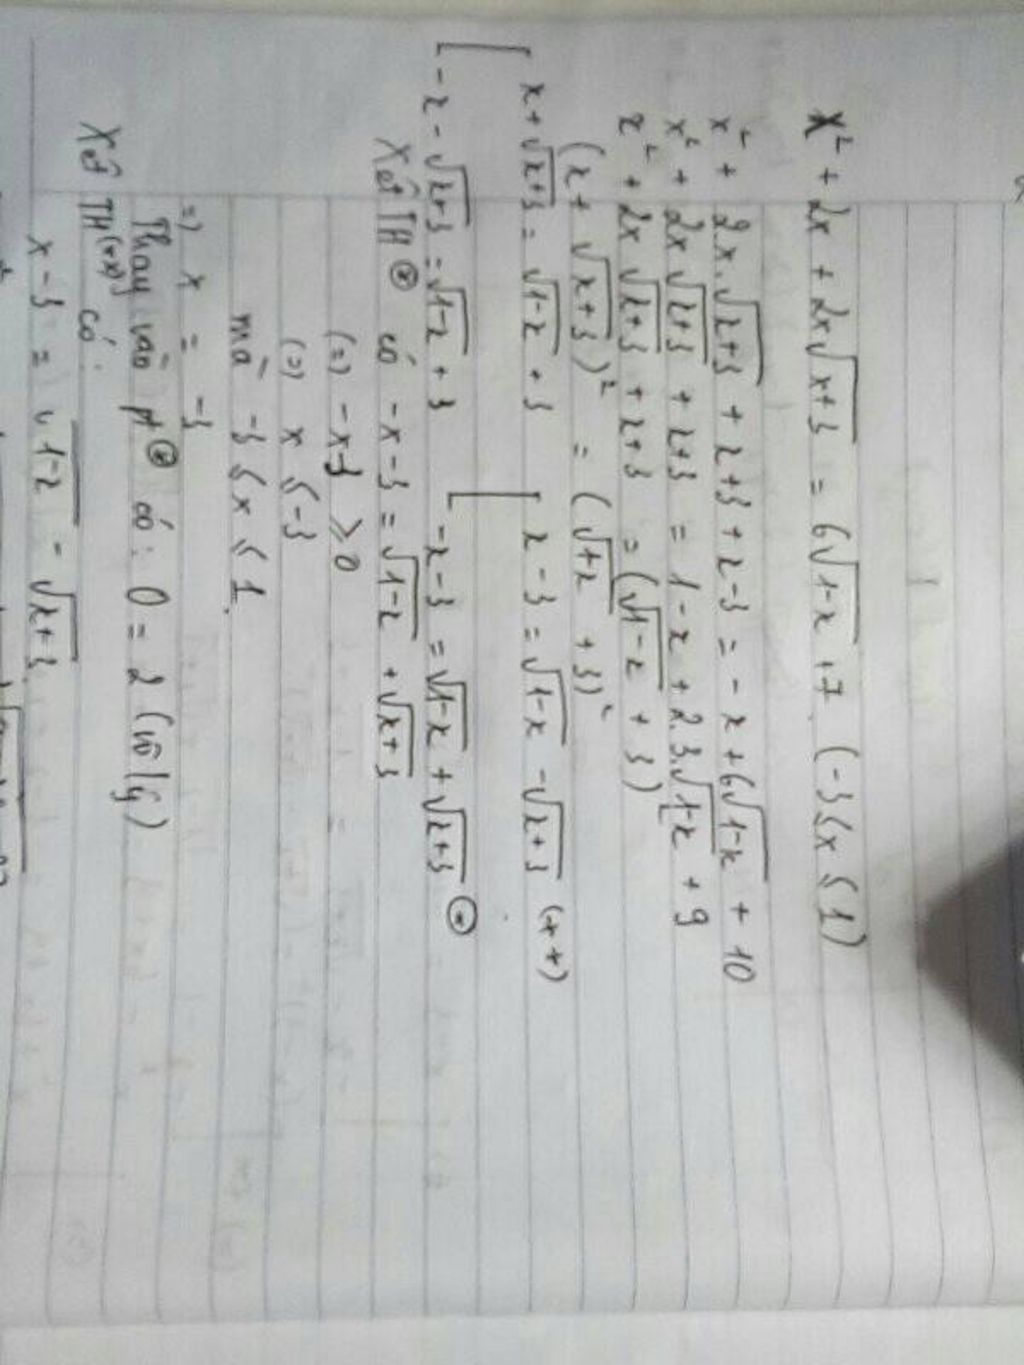 x² + 2x + 2x√x+3 = 6√1-x + 7 (-3 ≤ x ≤ 1)
x² + 2x.√x+3 + x+3 + x-3 = - x + 6√1-x + 10
x² + 2x√x+3 + x+3 = 1-x + 2.3.√1-x + 9
x² + 2x√x+3 + x+3 = (√1-x + 3)²
(x + √x+3)² = (√1-x + 3)²
[ x + √x+3 = √1-x + 3 [ x - 3 = √1-x - √x+3 (**)
[ -x - √x+3 = √1-x + 3 [ -x-3 = √1-x + √x+3 (*)
Xét TH (*) có -x-3 = √1-x + √x+3
(=) -x-3 ≥ 0
(=) x ≤ -3
mà -3 ≤ x ≤ 1
=) x = -3
Thay vào pt (*) có: 0 = 2 (vô lý)
Xét TH (**) có:
x - 3 = √1-x - √x+3